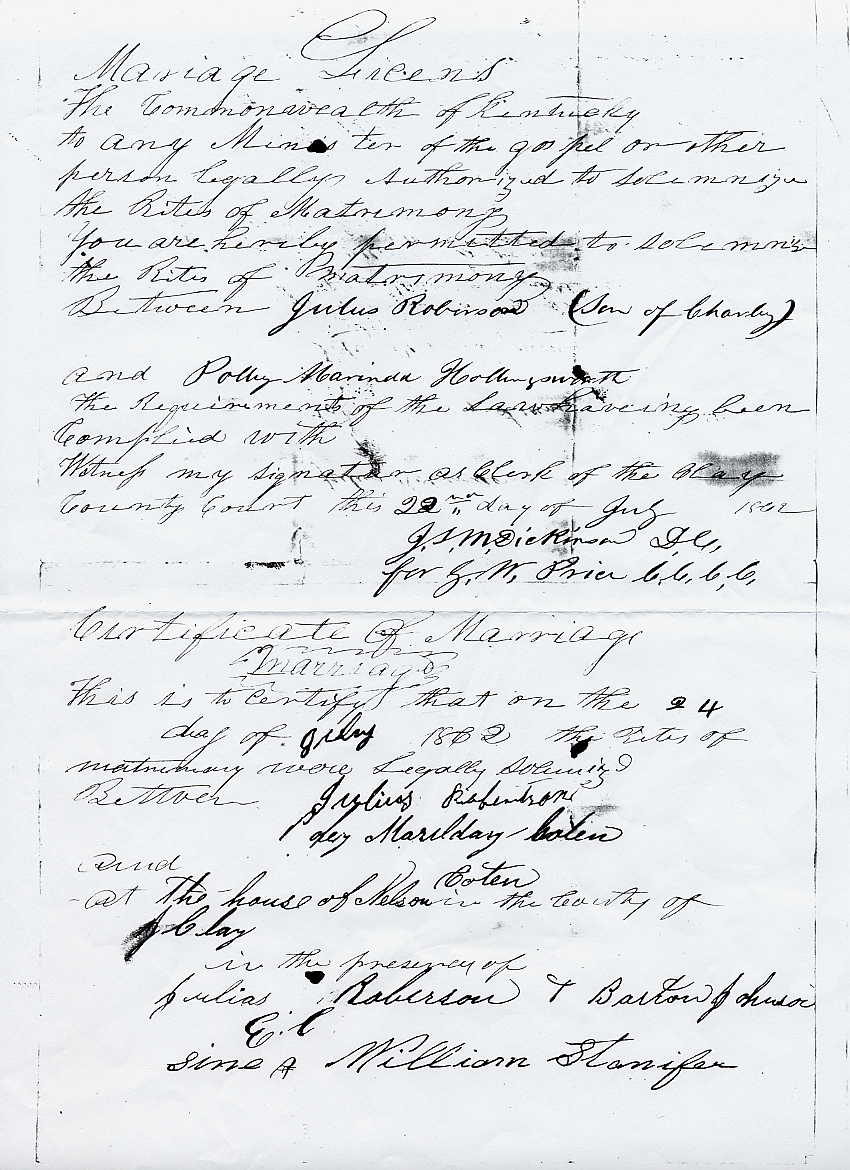 Mariage Licens
The Commonwealth of Kentucky
to any Minister of the gospel or other
person legally Authorized to solemnize
the Rites of Matrimony
You are hereby permitted to solemnize
the Rites of Matrimony
Between Julus Robinson (Son of Charley)
and Polly Marinda Hollingsworth
the Requirements of the Law haveing been
Complied with
Witness my signatur as Clerk of the Clay
County Court this 22nd day of July 1862
J. S. M. Dickinson D.C.,
for G. W. Price C.C.C.C.
Certificate of Marriage
Marriage
This is to certify that on the 24
day of july 1862 the Rites of
matrimony were Legally Solemnizd
Between Julius Robertson
Marilday Coten
and
at the house of Nelson Coten in the County of
Clay
in the presency of
julias Roberson & Barton Johnson
E. C
sine William Stanifer